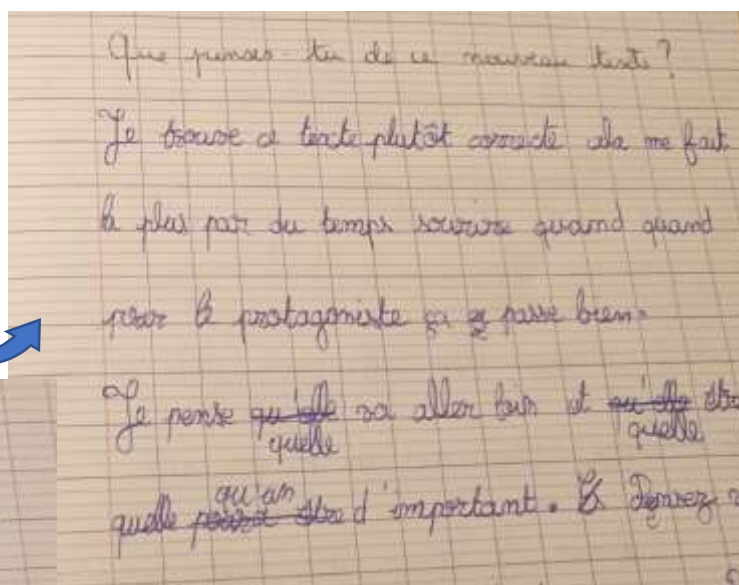 Que penses-tu de ce nouveau texte?
Je trouve ce texte plutôt correcte cela me fait
la plus par du temps sourire quand quand
pour le protagoniste ça se passe bien.
Je pense qu'elle quelle va aller loin et qu'elle quelle
quelle qu'an d'important.